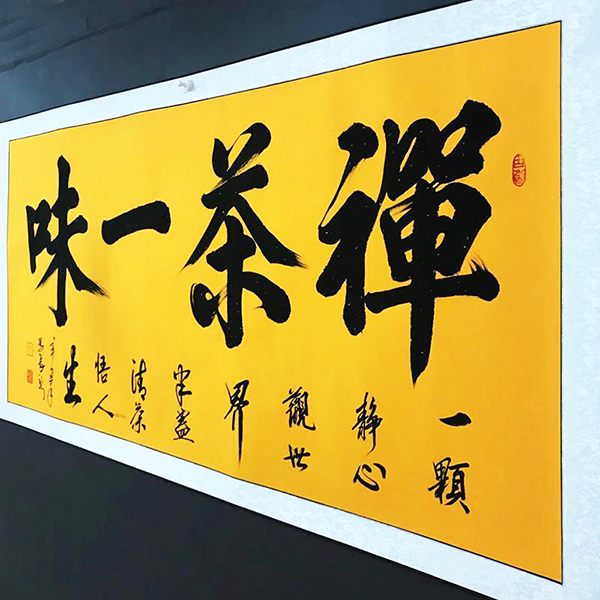 禪茶一味
一顆
靜心
觀世
界
半盞
清茶
悟人
生